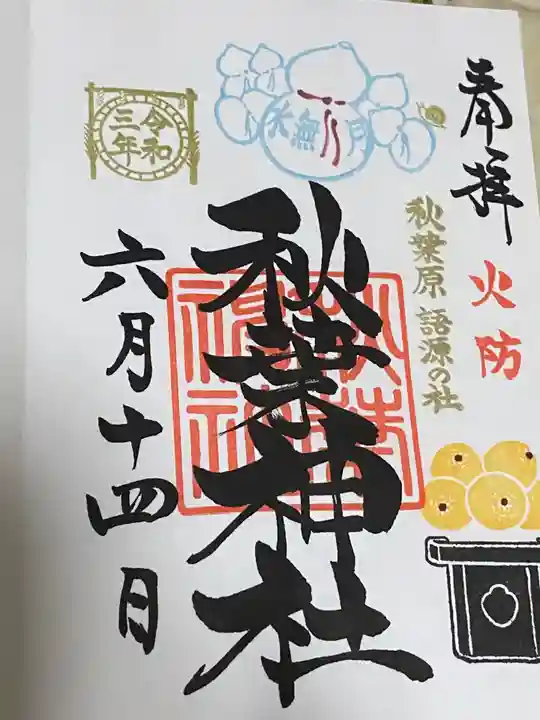 奉拝
火防
秋葉原 語源の社
秋葉神社
水無月
令和
三年
六月十四日